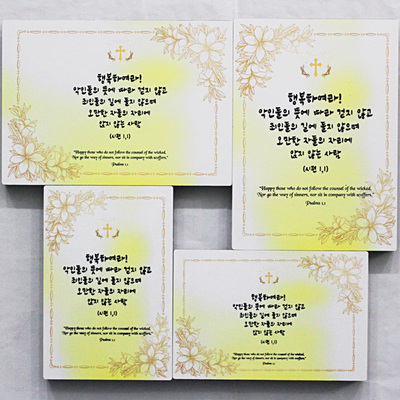 행복하여라!
악인들의 뜻에 따라 걷지 않고
죄인들의 길에 들지 않으며
오만한 자들의 자리에
앉지 않는 사람
(시편 1,1)
"Happy those who do not follow the counsel of the wicked,
Nor go the way of sinners, nor sit in company with scoffers."
Psalms 1,1
행복하여라!
악인들의 뜻에 따라 걷지 않고
죄인들의 길에 들지 않으며
오만한 자들의 자리에
앉지 않는 사람
(시편 1,1)
"Happy those who do not follow the counsel of the wicked,
Nor go the way of sinners, nor sit in company with scoffers."
Psalms 1,1
행복하여라!
악인들의 뜻에 따라 걷지 않고
죄인들의 길에 들지 않으며
오만한 자들의 자리에
앉지 않는 사람
(시편 1,1)
"Happy those who do not follow the counsel of the wicked,
Nor go the way of sinners, nor sit in company with scoffers."
Psalms 1,1
행복하여라!
악인들의 뜻에 따라 걷지 않고
죄인들의 길에 들지 않으며
오만한 자들의 자리에
앉지 않는 사람
(시편 1,1)
"Happy those who do not follow the counsel of the wicked,
Nor go the way of sinners, nor sit in company with scoffers."
Psalms 1,1